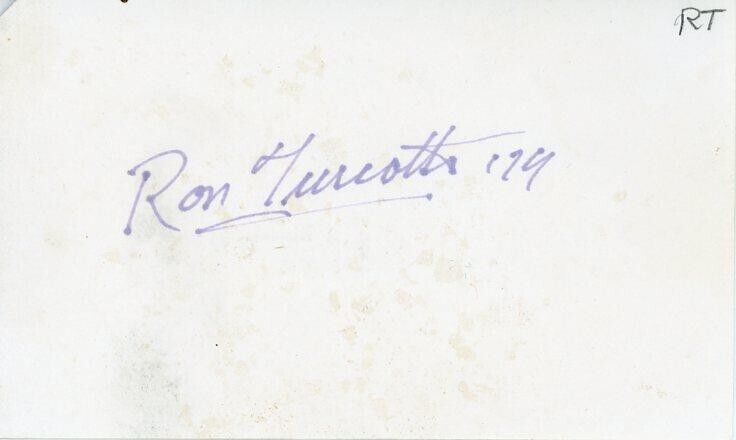 RT
Ron Turcotte '79